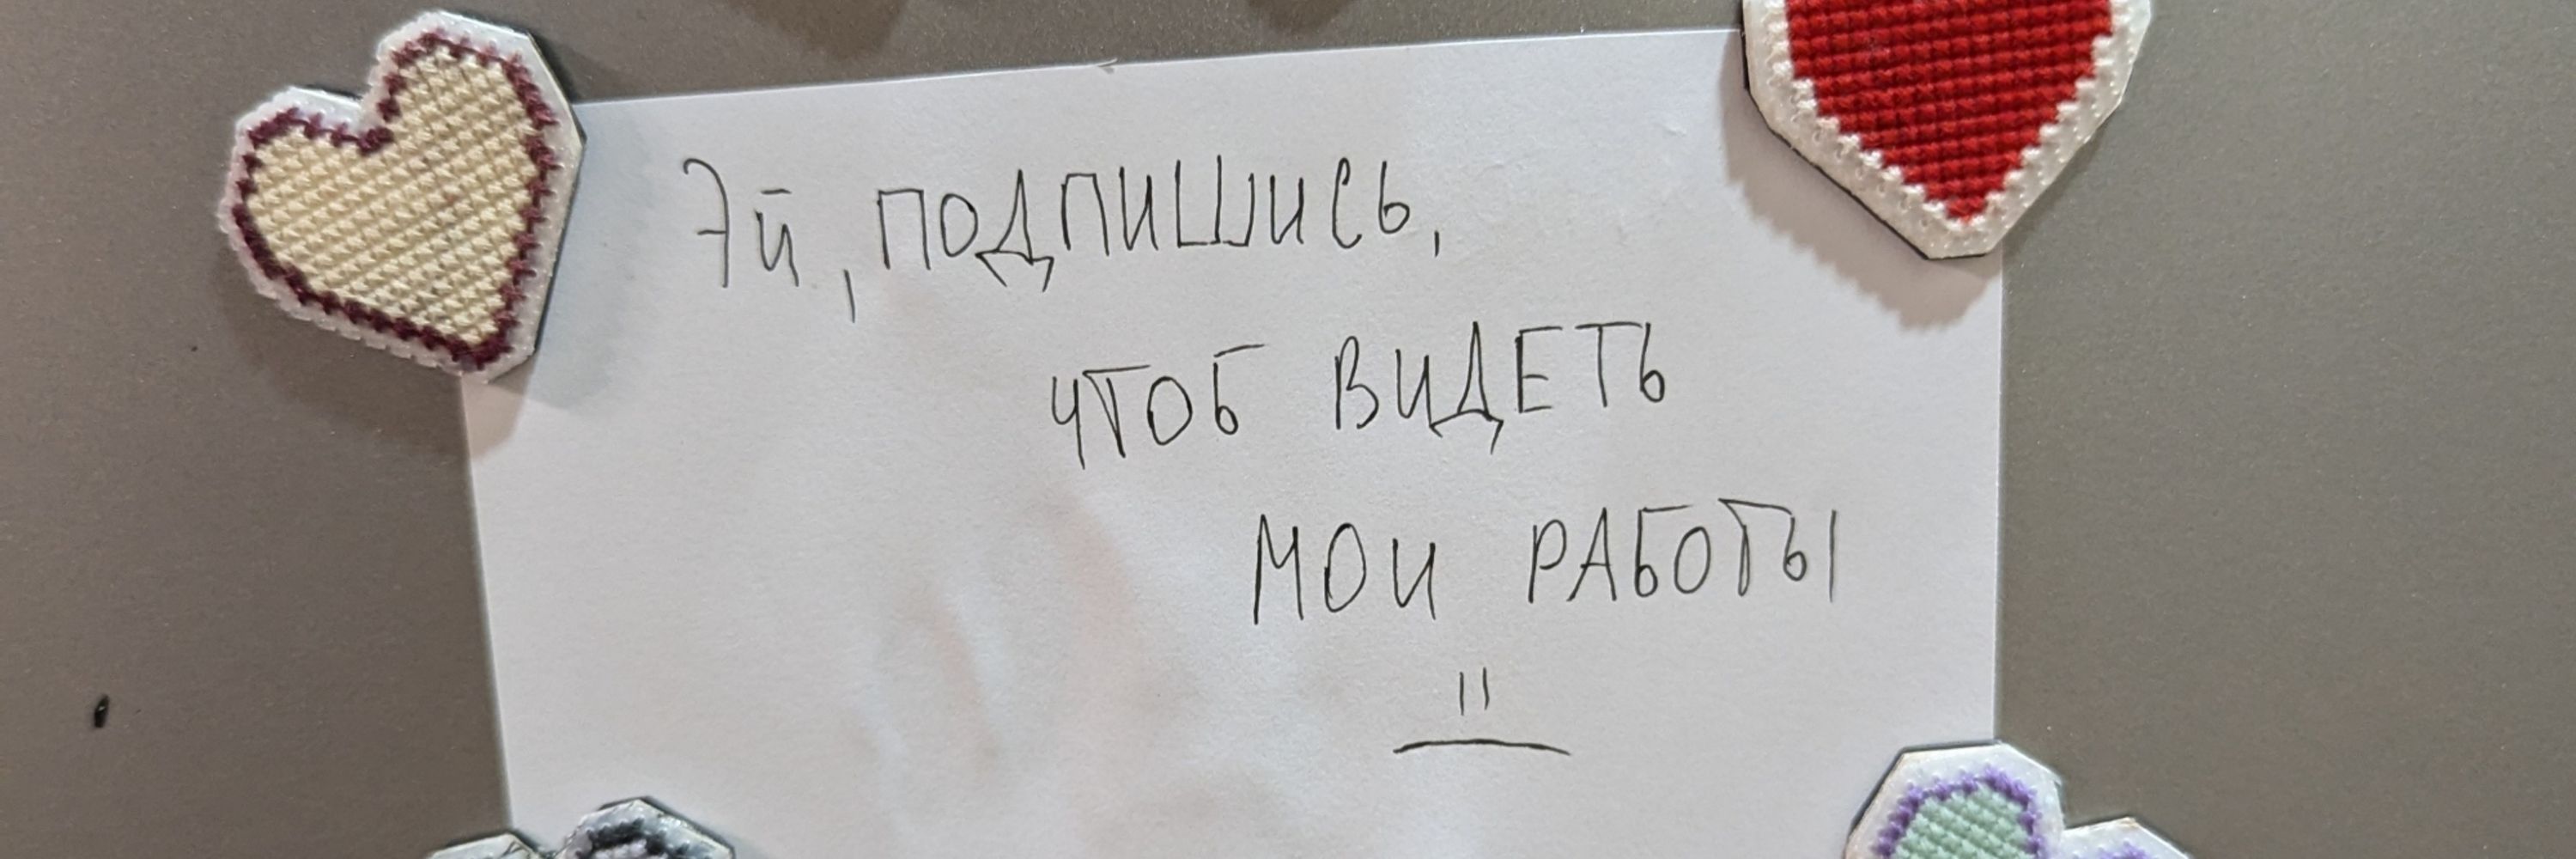 Эй, подпишись,
чтоб видеть
мои работы